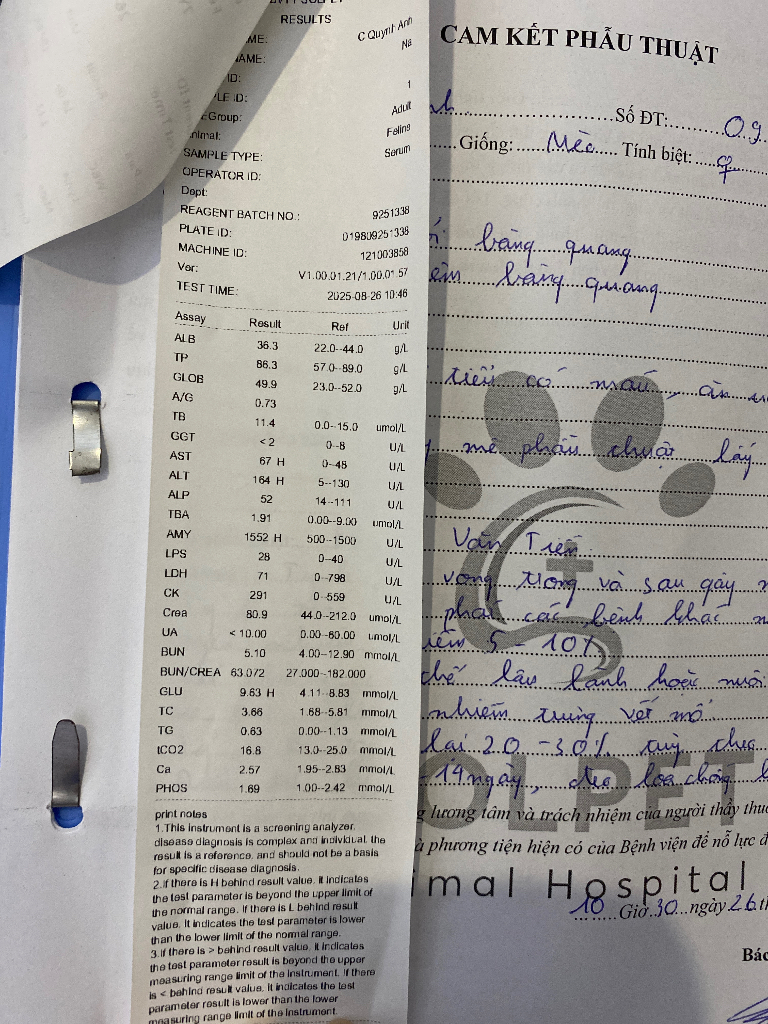 RESULTS
ME: C Quynh Anh
AME: Na
ID:
LE ID: 1
Group: Adult
nimal: Feline
SAMPLE TYPE: Serum
OPERATOR ID:
Dept:
REAGENT BATCH NO.: 9251338
PLATE ID: 019809251338
MACHINE ID: 121003858
Ver: V1.00.01.21/1.00.01.57
TEST TIME: 2025-08-26 10:46
Assay Result Ref Unit
ALB 36.3 22.0--44.0 g/L
TP 86.3 57.0--89.0 g/L
GLOB 49.9 23.0--52.0 g/L
A/G 0.73
TB 11.4 0.0--15.0 umol/L
GGT < 2 0--8 U/L
AST 67 H 0--48 U/L
ALT 164 H 5--130 U/L
ALP 52 14--111 U/L
TBA 1.91 0.00--9.00 umol/L
AMY 1552 H 500--1500 U/L
LPS 28 0--40 U/L
LDH 71 0--798 U/L
CK 291 0--559 U/L
Crea 80.9 44.0--212.0 umol/L
UA < 10.00 0.00--60.00 umol/L
BUN 5.10 4.00--12.90 mmol/L
BUN/CREA 63.072 27.000--182.000
GLU 9.63 H 4.11--8.83 mmol/L
TC 3.66 1.68--5.81 mmol/L
TG 0.63 0.00--1.13 mmol/L
tCO2 16.8 13.0--25.0 mmol/L
Ca 2.57 1.95--2.83 mmol/L
PHOS 1.69 1.00--2.42 mmol/L
print notes
1.This instrument is a screening analyzer,
disease diagnosis is complex and individual, the
result is a reference, and should not be a basis
for specific disease diagnosis.
2.If there is H behind result value, it indicates
the test parameter is beyond the upper limit of
the normal range. If there is L behind result
value, it indicates the test parameter is lower
than the lower limit of the normal range.
3.If there is > behind result value, it indicates
the test parameter result is beyond the upper
measuring range limit of the instrument. If there
is < behind result value, it indicates the test
parameter result is lower than the lower
measuring range limit of the instrument.
CAM KẾT PHẪU THUẬT
Số ĐT: 09
Giống: Mèo Tính biệt: ♀
bàng quang
bàng quang
tiểu có máu,
mê phẫu thuật lấy
Văn Tiến
vong trong và sau gây
phát các bệnh khác
5 - 10%
lâu lành hoặc
nhiễm trùng vết mổ
lại 20 - 30% tùy
-14 ngày, đeo loa chống
g lương tâm và trách nhiệm của người thầy thuố
à phương tiện hiện có của Bệnh viện để nỗ lực đ
OLPET
imal Hospital
10 Giờ 30 ngày 26 th
Bác